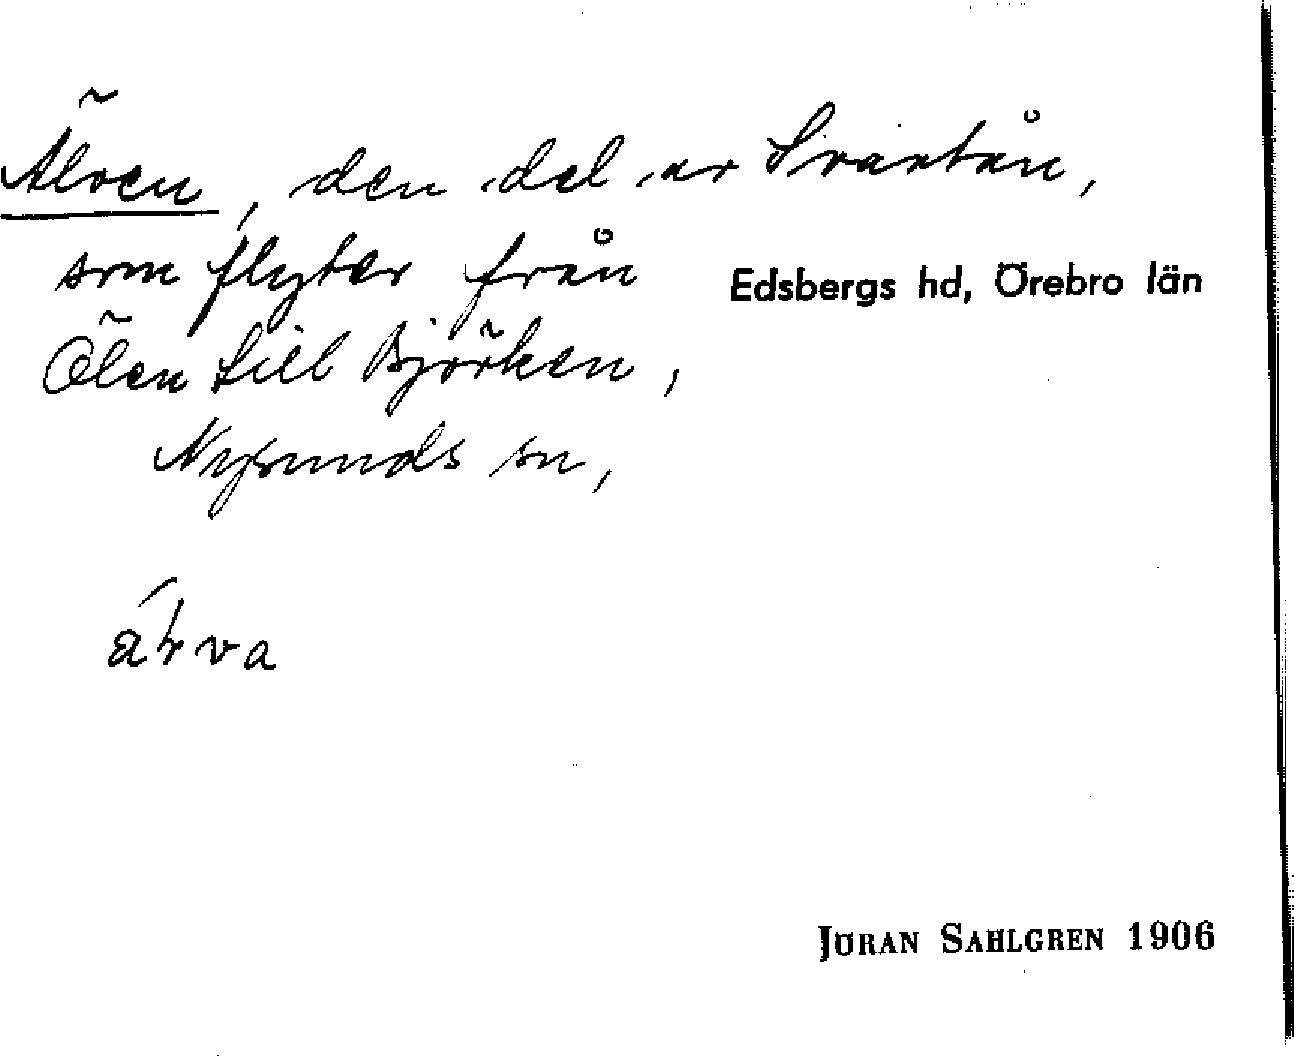 Älven, den del av Svartån,
som flyter från
Ölen till Björken,
Edsbergs hd, Örebro län
Nysunds sn,
JÖRAN SAHLGREN 1906